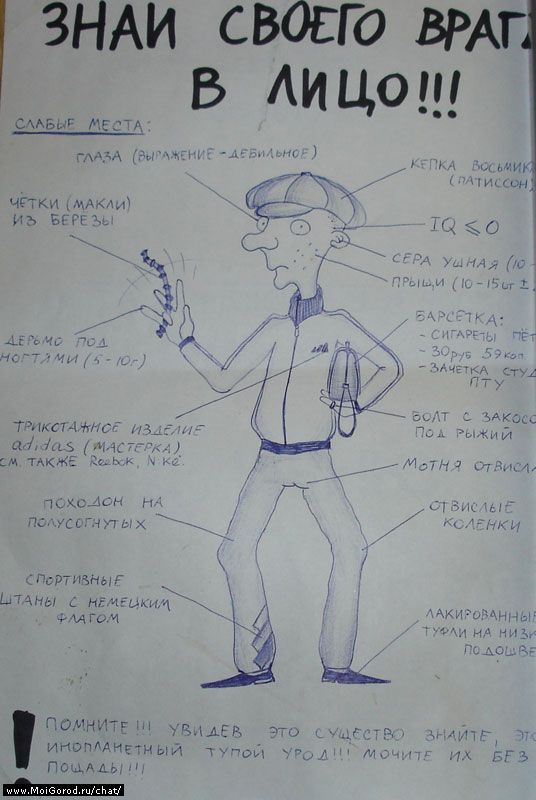 ЗНАЙ СВОЕГО ВРАГА
В ЛИЦО!!!
СЛАБЫЕ МЕСТА:
ГЛАЗА (ВЫРАЖЕНИЕ - ДЕБИЛЬНОЕ)
КЕПКА ВОСЬМИК
(ПАТИССОН)
ЧЁТКИ (МАКЛИ)
ИЗ БЕРЕЗЫ
IQ ⩽ 0
СЕРА УШНАЯ (10-
ПРЫЩИ (10-15шт ±
ДЕРЬМО ПОД
НОГТЯМИ (5-10г)
БАРСЕТКА:
- СИГАРЕТЫ ПЁТ
- 30 руб 59 коп
- ЗАЧЕТКА СТУД
ПТУ
ТРИКОТАЖНОЕ ИЗДЕЛИЕ
adidas (МАСТЕРКА)
СМ. ТАКЖЕ Reebok, Nike.
БОЛТ С ЗАКОСО
ПОД РЫЖИЙ
МОТНЯ ОТВИСЛА
ПОХОДОН НА
ПОЛУСОГНУТЫХ
ОТВИСЛЫЕ
КОЛЕНКИ
СПОРТИВНЫЕ
ШТАНЫ С НЕМЕЦКИМ
ФЛАГОМ
ЛАКИРОВАННЫЕ
ТУФЛИ НА НИЗК
ПОДОШВЕ
! ПОМНИТЕ!!! УВИДЕВ ЭТО СУЩЕСТВО ЗНАЙТЕ, ЭТО
ИНОПЛАНЕТНЫЙ ТУПОЙ УРОД!!! МОЧИТЕ ИХ БЕЗ
ПОЩАДЫ!!!
www.MoiGorod.ru/chat/